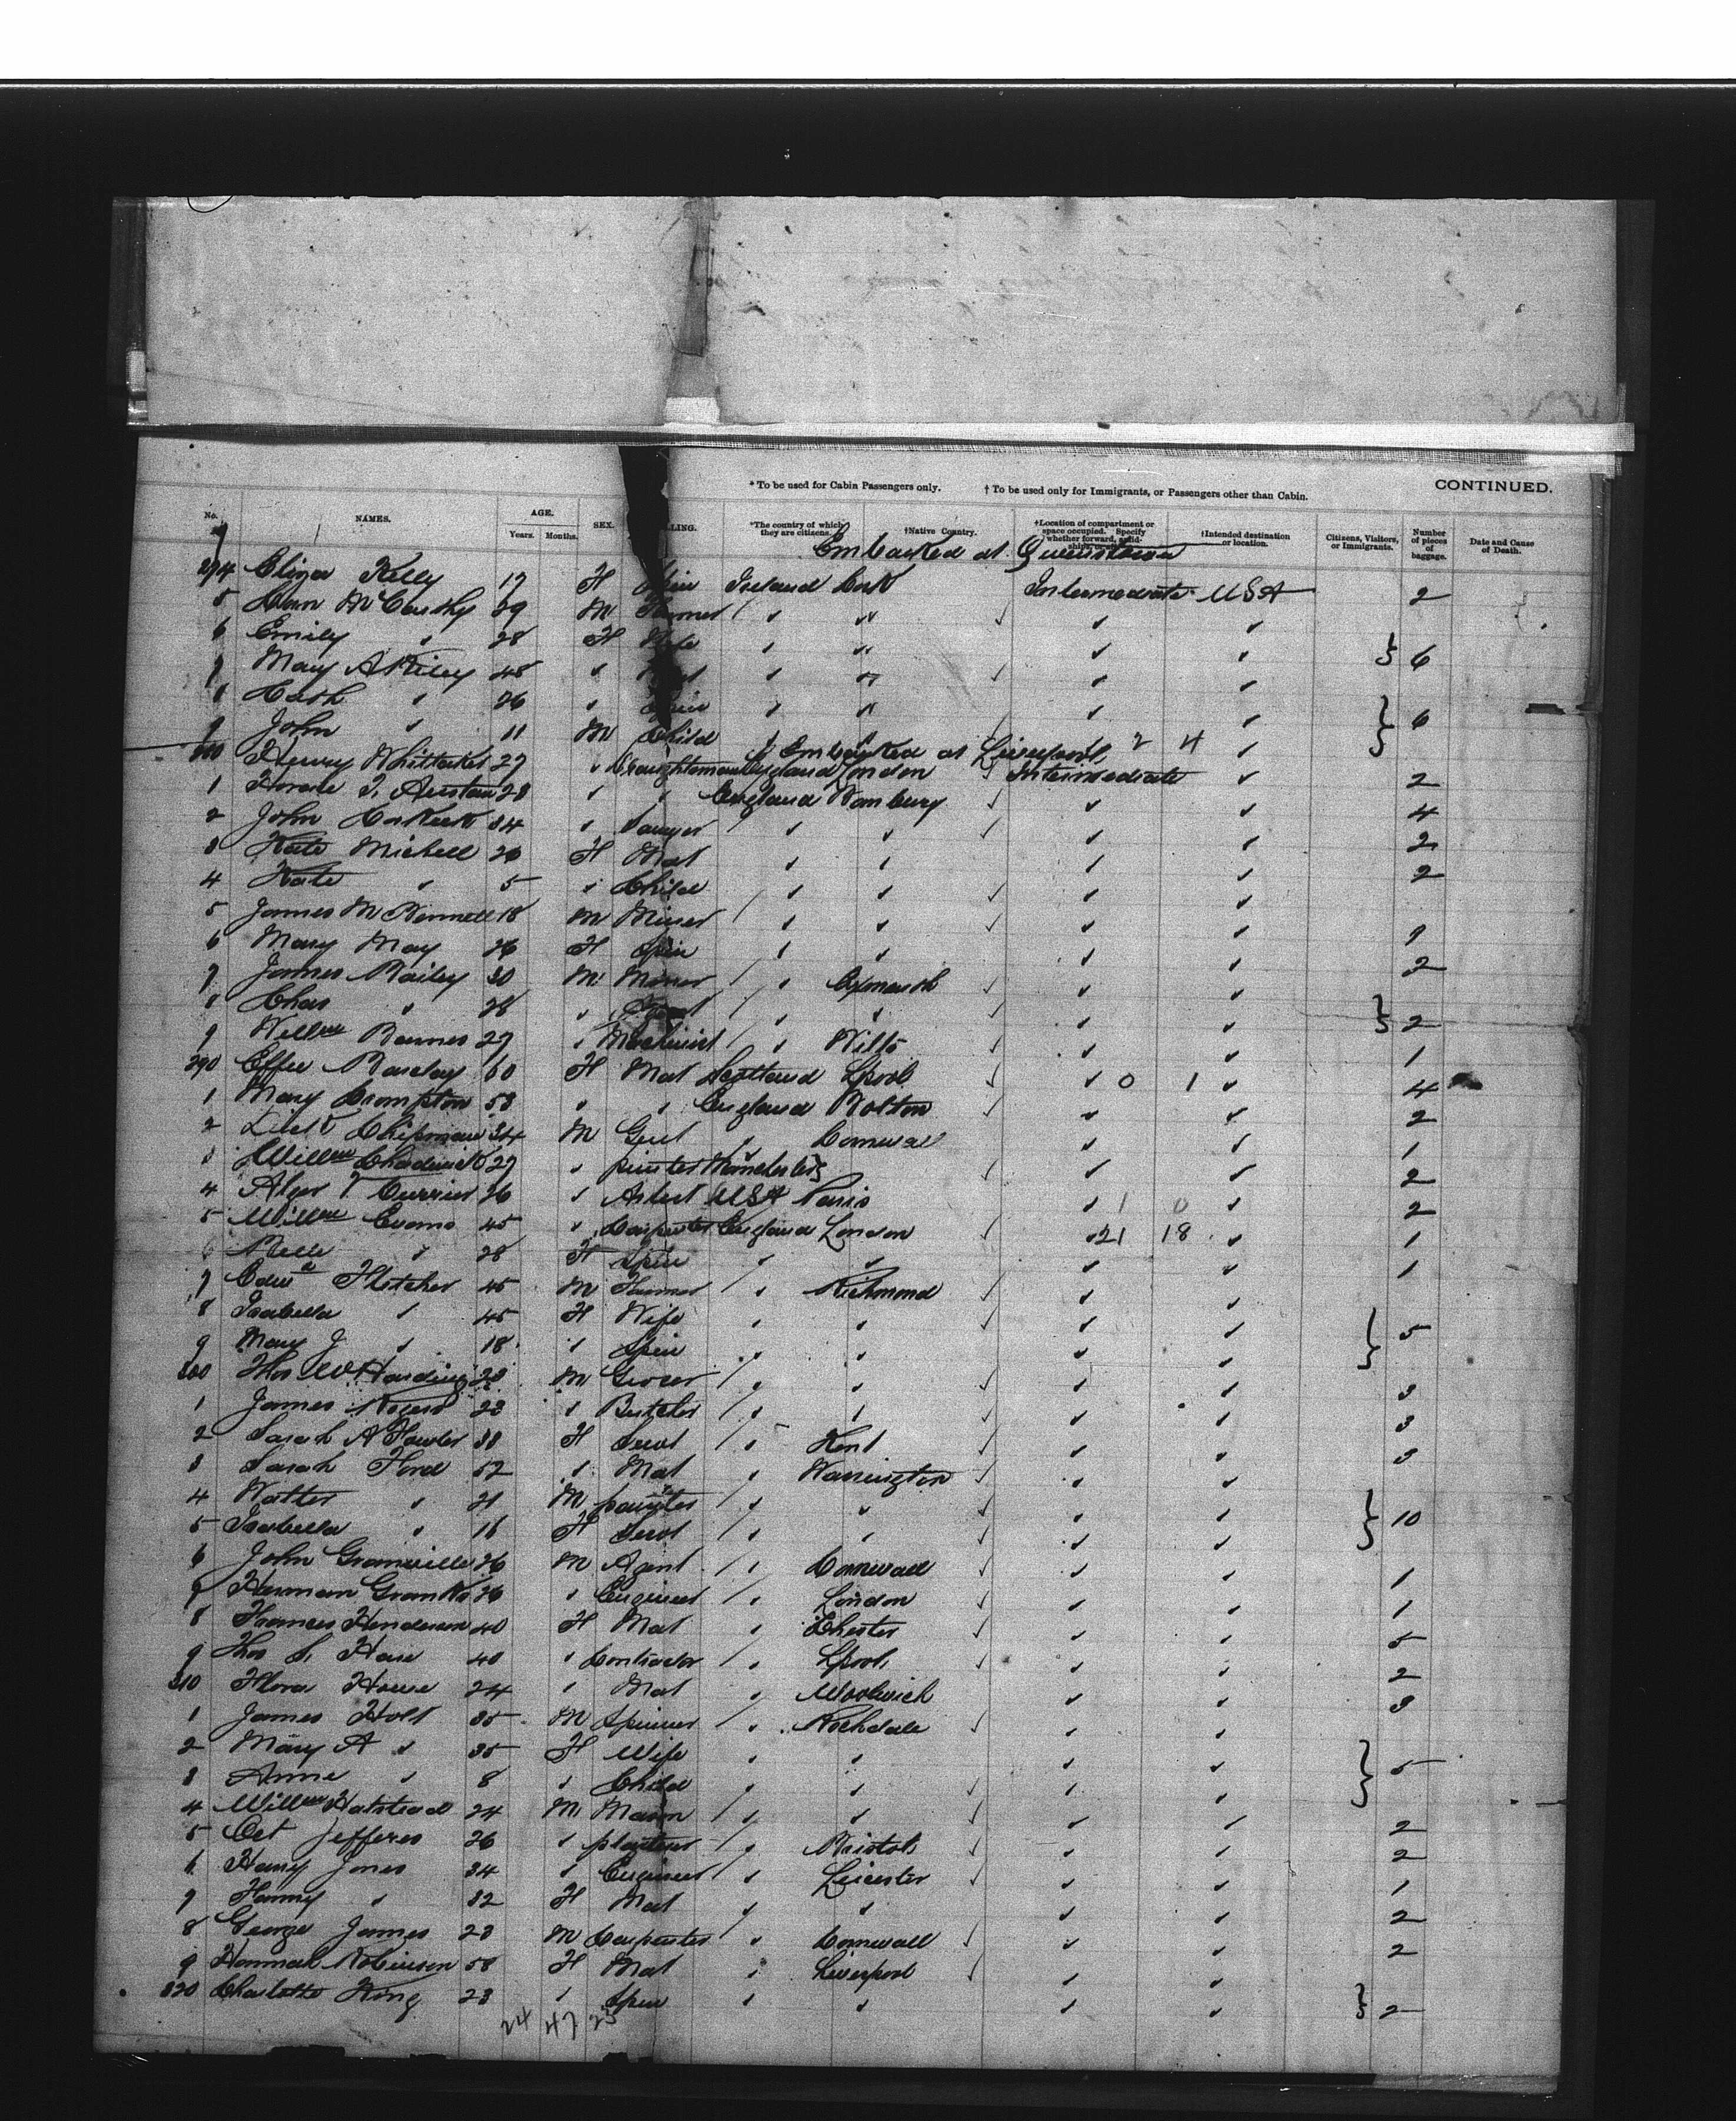 * To be used for Cabin Passengers only. † To be used only for Immigrants, or Passengers other than Cabin. CONTINUED.
No. NAMES. AGE. Years. Months. SEX. LLING. *The country of which they are citizens. †Native Country. †Location of compartment or space occupied. Specify whether forward, †Intended destination or location. Citizens, Visitors, or Immigrants. Number of pieces of baggage. Date and Cause of Death.
Embarked at Queenstown
274 Eliza Kelly 17 F Spin Ireland Cork Intermediate USA 2
5 McCarthy 29 M Farmer
6 Emily " 28 F 6
7 Mary A Riley 48
8 " 26 Spin
9 John " 11 M Child 6
Embarked at Liverpool 2 4
280 Henry Whittaker 27 Draughtsman England London Intermediate 2
1 28 England 4
2 John 34 Sawyer 2
3 Kate Michell 26 F Mat 2
4 Kate " 5 Child
5 James M Bennett 18 M Miner
6 Mary May 26 F Spin 2
7 James Bailey 30 M Miner
8 Chas " 28 2
9 Willm Barnes 27 Machinist Wilts 1
290 Effie Barclay 60 F Mat Scotland Lpool 0 1 4
1 Mary Crompton 53 England Bolton 2
2 Chipman 34 M Gent Cornwall 1
3 Willm Chadwick 27 Manchester 2
4 Alger V Currier 26 Artist USA Paris 1 0 2
5 Willm Evans 45 Carpenter England London 21 18 1
6 Belle " 28 F Spin 1
7 Edwd Fletcher 45 M Farmer Richmond
8 Isabella " 45 F Wife 5
9 Mary J " 18 Spin
300 Thos W Harding 23 M Grocer 3
1 James Rogers 23 Butcher 3
2 Sarah A Fowler 38 F Servt Kent 3
3 Sarah Ford 52 Mat Warrington
4 Walter " 21 M painter 10
5 Isabella " 16 F Servt
6 John Granville 26 M Agent Cornwall 1
7 Herman 26 Engineer London 1
8 Frances Henderson 40 F Mat Chester 5
9 Thos S. Hare 40 Contractor Lpool 2
310 Flora Howe 24 Mat Woolwich 3
1 James Holt 35 M Spinner Rochdale
2 Mary A " 35 F Wife 5
3 Anne " 8 Child
4 Willm Halstead 24 M Mason 2
5 Jefferes 26 Bristol 2
6 Harry Jones 34 Engineer Leicester 1
7 Fanny " 32 F Mat 2
8 George James 23 M Carpenter Cornwall 2
9 Hannah Robinson 58 F Mat Liverpool
320 Charlotte King 23 Spin 2
24 47 25